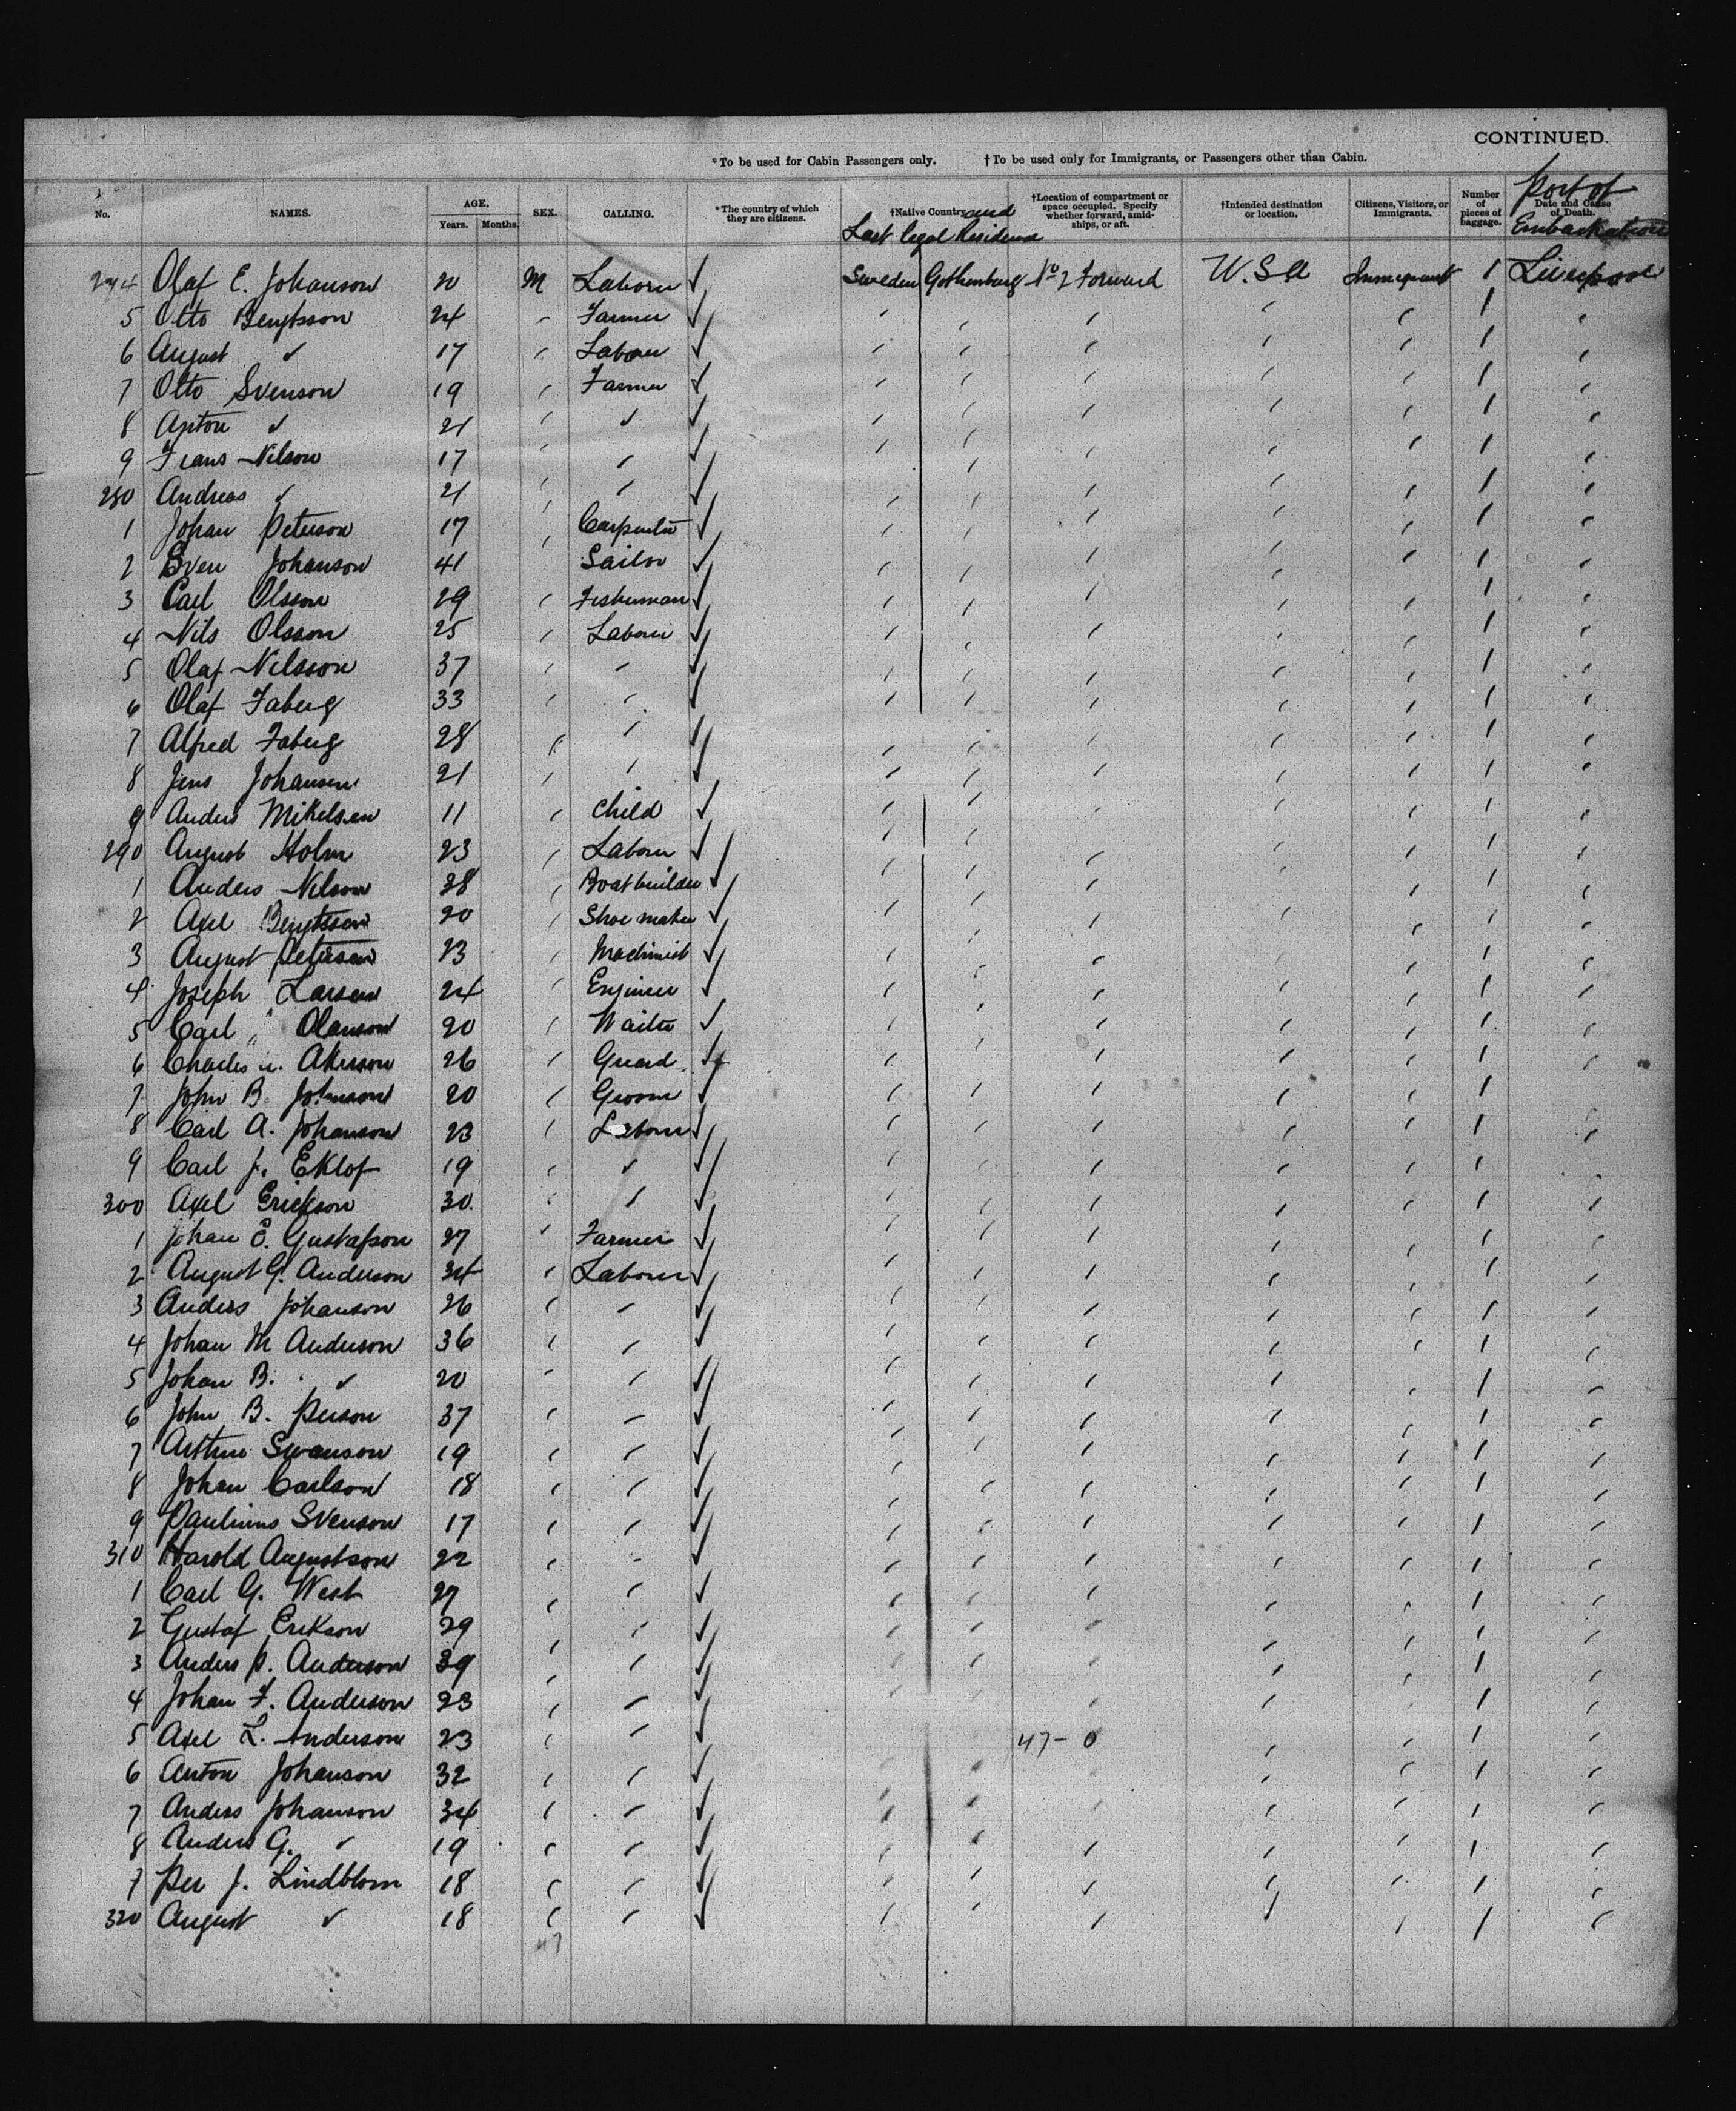 CONTINUED.
*To be used for Cabin Passengers only. †To be used only for Immigrants, or Passengers other than Cabin.
No. NAMES. AGE. Years. Months. SEX. CALLING. *The country of which they are citizens. †Native Country and Last legal Residence †Location of compartment or space occupied. Specify whether forward, amidships, or aft. †Intended destination or location. Citizens, Visitors, or Immigrants. Number of pieces of baggage. Date and Cause of Death. Port of Embarkation
274 Olaf E. Johanson 20 M Laborer ✓ Sweden Gothenburg No 2 Forward U.S.A Immigrant 1 Liverpool
5 Otto Bengtsson 24 Farmer ✓
6 August ✓ 17 Laborer ✓
7 Otto Svenson 19 Farmer ✓
8 Anton ✓ 21 ✓ ✓
9 Frans Nilson 17 ✓
280 Andreas ✓ 21 ✓
1 Johan Peterson 17 Carpenter ✓
2 Sven Johanson 41 Sailor ✓
3 Carl Olsson 29 Fisherman ✓
4 Nils Olsson 25 Laborer ✓
5 Olaf Nilsson 37 ✓
6 Olaf Faberg 33 ✓
7 Alfred Faberg 28 ✓
8 Jens Johansen 21 ✓
9 Anders Mikelsen 11 Child ✓
290 August Holm 23 Laborer ✓
1 Anders Nilson 38 Boatbuilder ✓
2 Axel Bengtsson 20 Shoe maker ✓
3 August Peterson 23 Machinist ✓
4 Joseph Larsen 24 Engineer ✓
5 Carl Olauson 20 Waiter ✓
6 Charles Akerson 26 Guard ✓
7 John B. Johnson 20 Groom ✓
8 Carl A. Johanson 23 Laborer ✓
9 Carl J. Eklof 19 ✓ ✓
300 Axel Erickson 30 ✓
1 Johan E. Gustafson 27 Farmer ✓
2 August G. Anderson 34 Laborer ✓
3 Anders Johanson 26 ✓
4 Johan M Anderson 36 ✓
5 Johan B. ✓ 20 ✓
6 John B. Person 37 ✓
7 Arthur Swanson 19 ✓
8 Johan Carlson 18 ✓
9 Paulinus Svenson 17 ✓
310 Harold Augustson 22 ✓
1 Carl G. West 27 ✓
2 Gustaf Erikson 29 ✓
3 Anders P. Anderson 39 ✓
4 Johan F. Anderson 23 ✓
5 Axel L. Anderson 23 ✓ 47-0
6 Anton Johanson 32 ✓
7 Anders Johanson 34 ✓
8 Anders G. ✓ 19 ✓
9 Per J. Lindblom 18 ✓
320 August ✓ 18 ✓
47